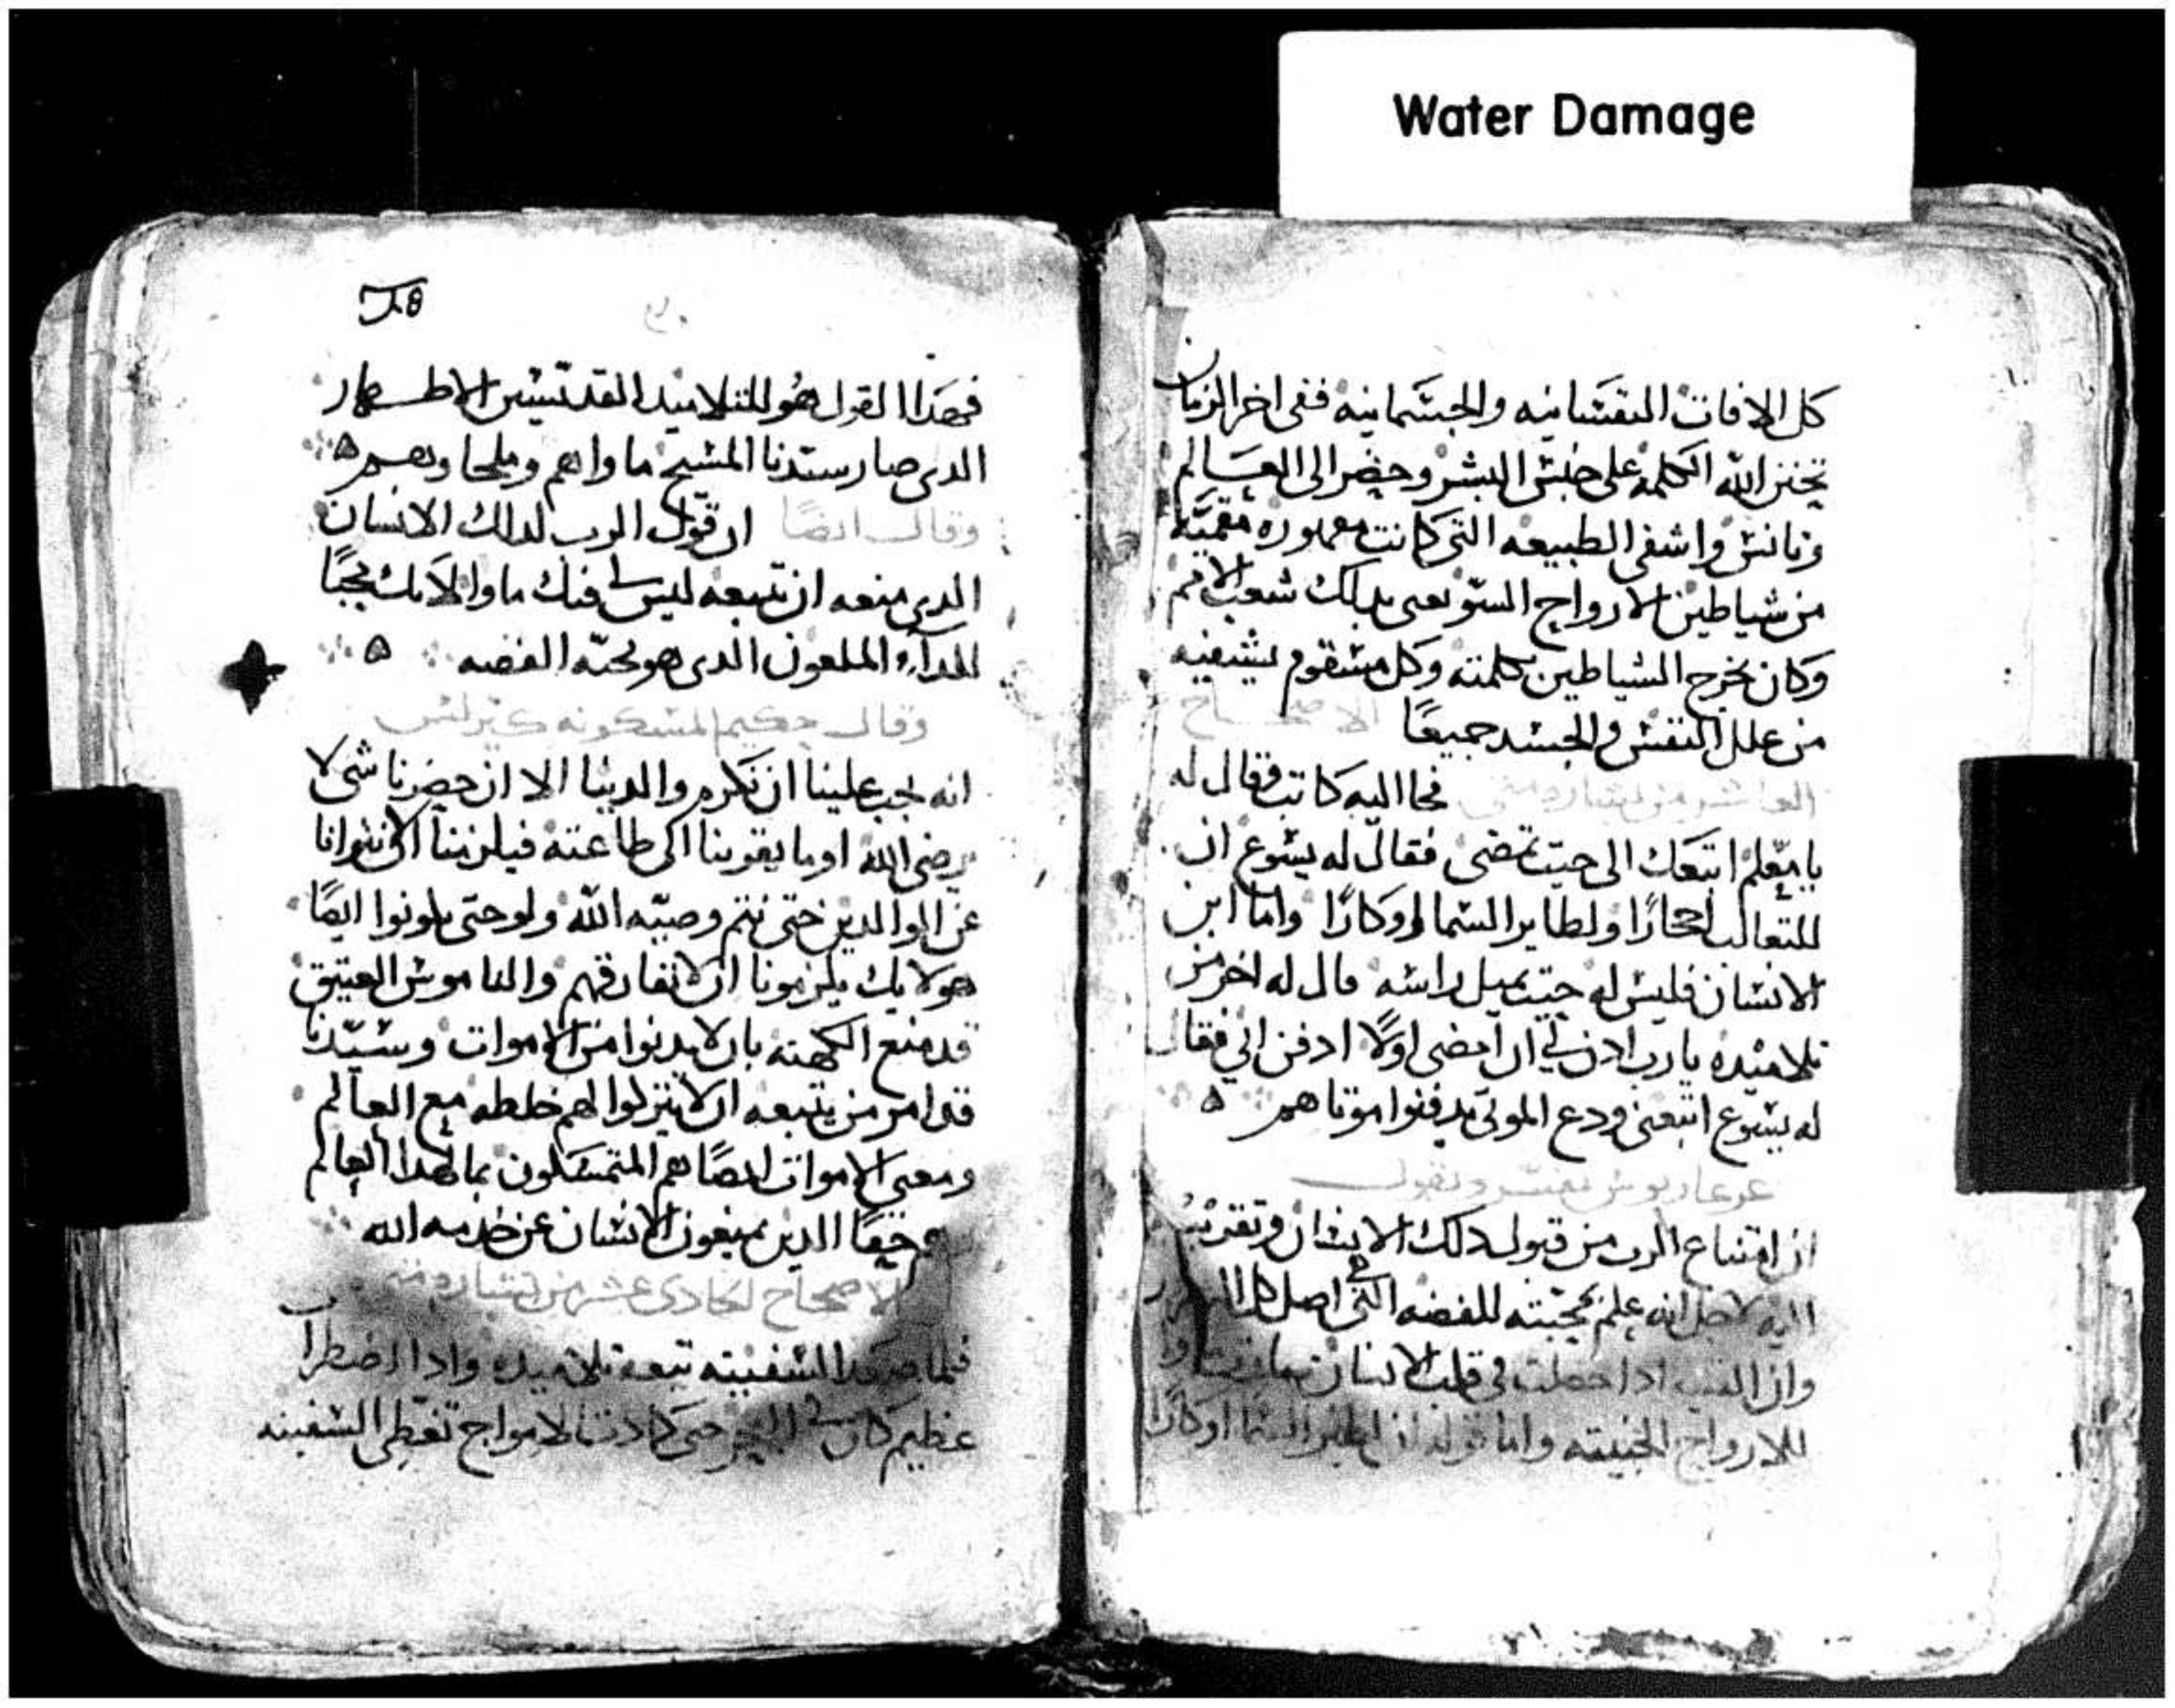 Water Damage
كل الافات النفسانيه والجسمانيه ففى اخر الزمان
تحنن الله الكلمه على جنس البشر وحضر الى العالم
وتانس واشفى الطبيعه التى كانت مقهوره
من شياطين الارواح السو يعى بدلك شعب الامم
وكان يخرج الشياطين بكلمته وكل مسقوم يشفيه
من علل النفس والجسد جميعًا الاصحاح
العاشر من بشاره متى فجا اليه كاتب فقال له
يا معلم اتبعك الى حيت تمضى فقال له يسوع ان
للتعالب احجارًا ولطاير السما اوكارًا واما ابن
الانسان فليس له حيت يميل راسه قال له اخر من
تلاميده يا رب ادن لي ان امضى اولًا ادفن ابي فقال
له يسوع اتبعنى ودع الموتى يدفنوا موتاهم
يفسر ويقول
ان امتناع الرب من قبول دلك الانسان وتقريبه
اليه لاجل انه علم بمحبته للفضه التى اصل كل
وان ادا حصلت في قلب الانسان
للارواح الخبيته واما قوله ان لطير السما اوكارًا
فهدا القول هو للتلاميد القديسين الاطهار
الدى صار سيدنا المسيح ماواهم وملجاوهم
وقال ايضًا ان قول الرب لدلك الانسان
الدى منعه ان تتبعه ليس لى فيك ماوا لانك محبًا
للداء الملعون الدى هو محبه الفضه
وقال حكيم المسكونه كيرلس
انه يجب علينا ان نكرم والدينا الا ان حضرنا شى لا
يرضى الله او ما يقوينا الى طاعته فيلزمنا
عن الوالدين حتى نتم وصيه الله ولو حتى يكونوا ايضًا
هولايك يلزمونا ان لا نفارقهم والناموس العتيق
قد منع الكهنه بان لا يدنوا من الاموات وسيدنا
قد امر من يتبعه ان لا يتركوا لهم خلطه مع العالم
ومعنى الاموات ايضًا هم المتمسكون بما لهدا العالم
هم حقًا الدين يمنعون الانسان عن خدمه الله
الاصحاح الحادى عشر من بشاره متى
فلما صعد السفينه تبعه تلاميده وادا اضطراب
عظيم كان فى البحر حتى كادت الامواج تغطى السفينه